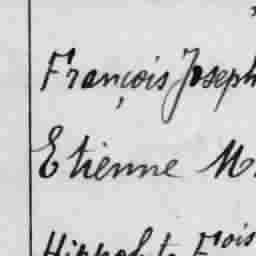 François Joseph
Etienne M.
Hippol te Fois